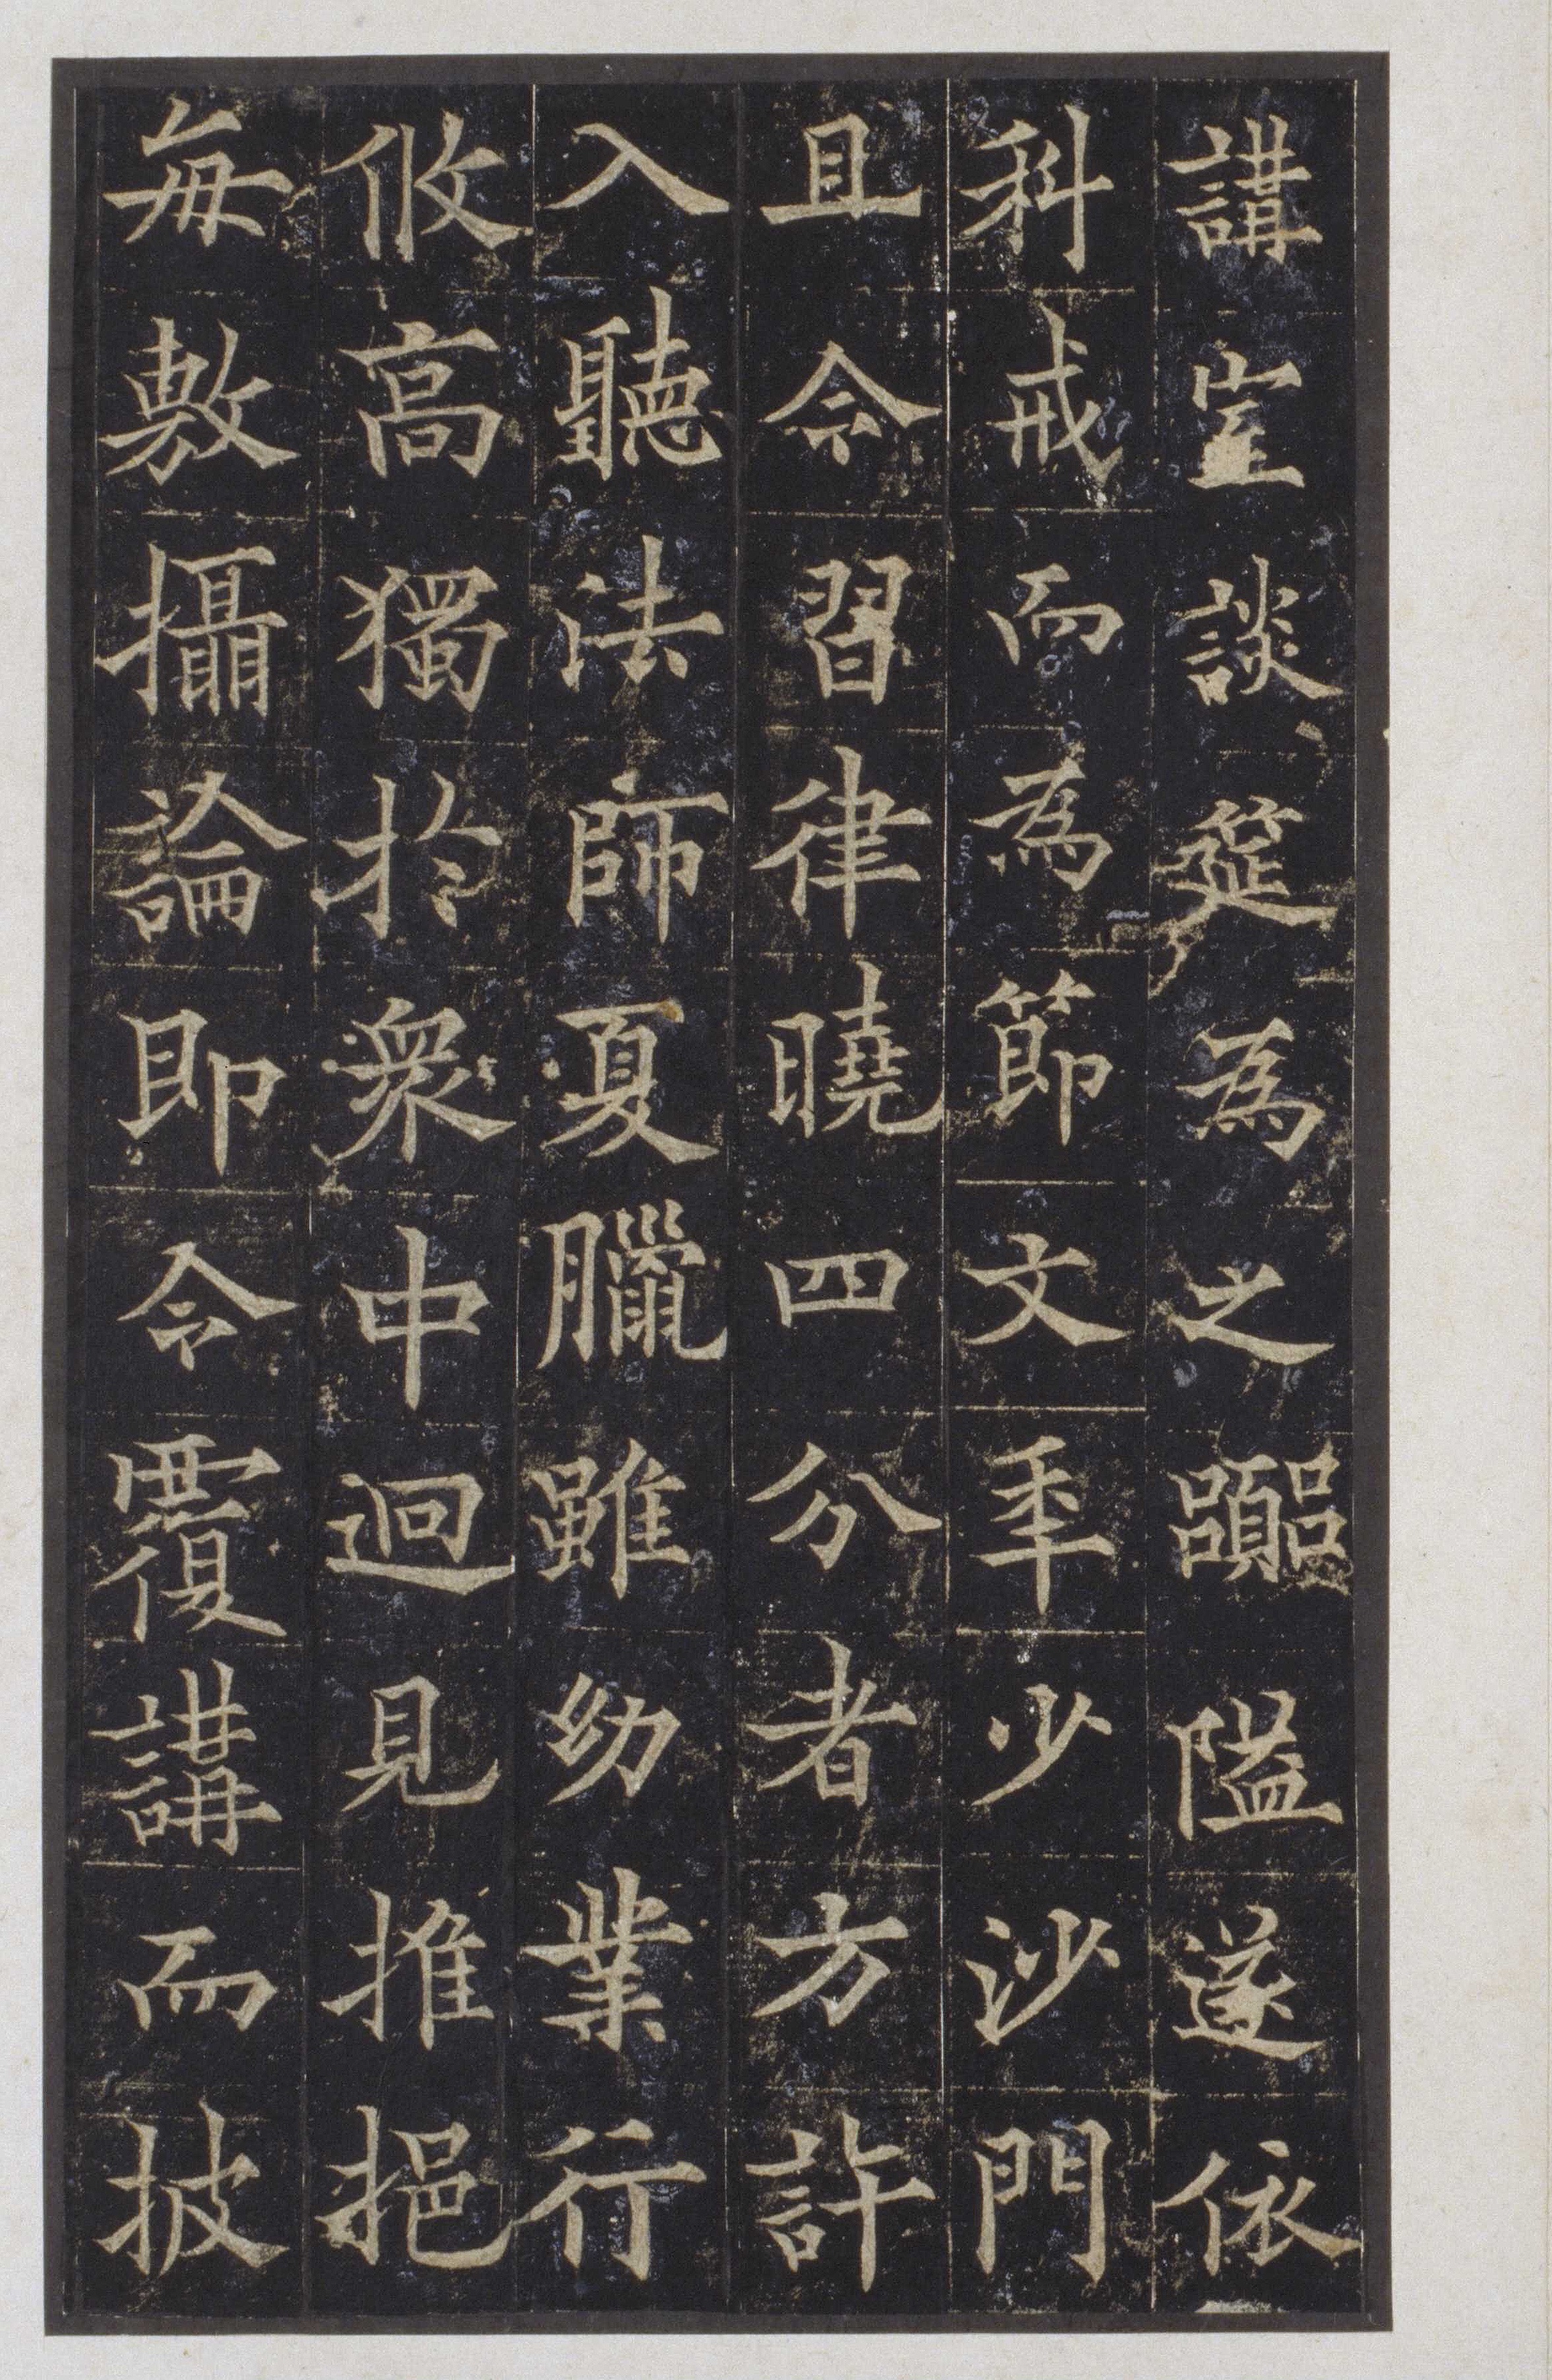 講室談筵為之嚻隘遂依
科戒而為節文年少沙門
且令習律曉四分者方許
入聽法師夏臘雖幼業行
攸高獨於衆中迥見推挹
每敷攝論即令覆講而披